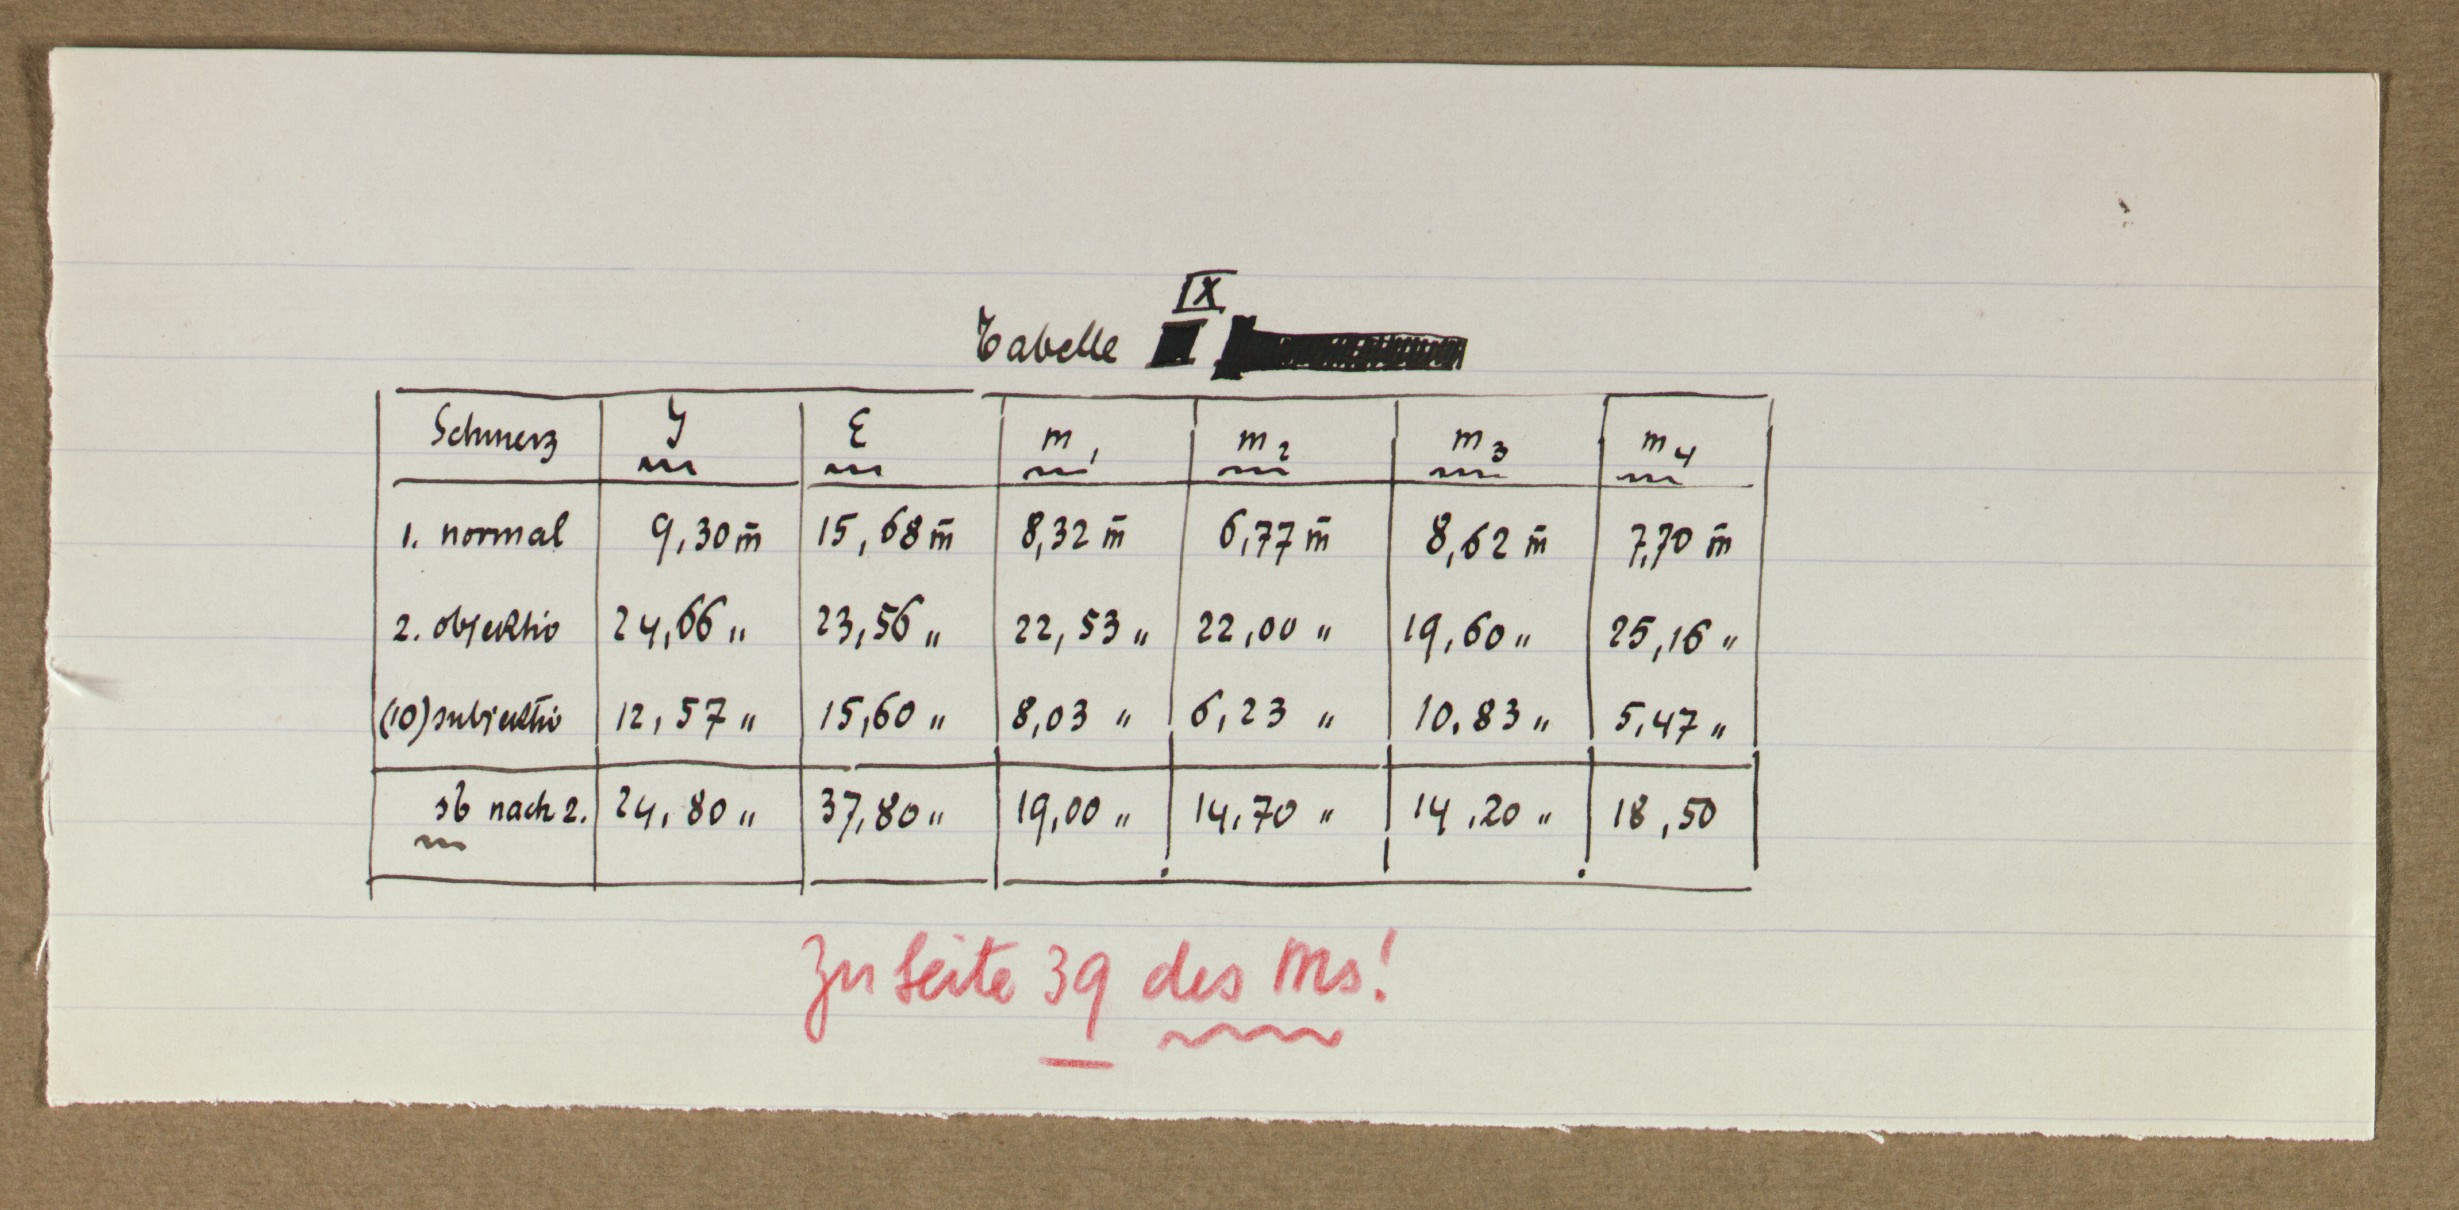 IX
Tabelle
Schmerz J E m1 m2 m3 m4
1. normal 9,30 m̄ 15,68 m̄ 8,32 m̄ 6,77 m̄ 8,62 m̄ 7,70 m̄
2. objektiv 24,66 " 23,56 " 22,53 " 22,00 " 19,60 " 25,16 "
(10) subjektiv 12,57 " 15,60 " 8,03 " 6,23 " 10,83 " 5,47 "
sb nach 2. 24,80 " 37,80 " 19,00 " 14,70 " 14,20 " 18,50
Zu Seite 39 des Ms!